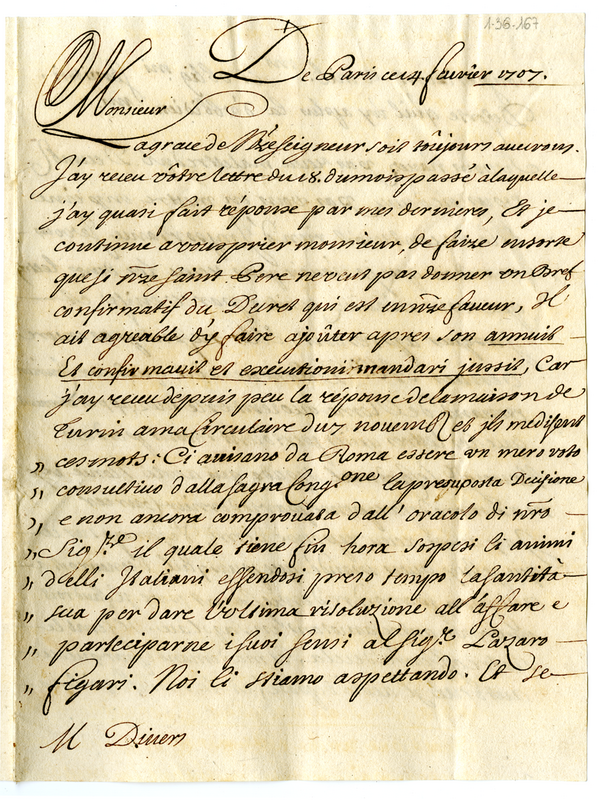 1-36-167
De Paris ce 14 favrier 1707.
Monsieur
La grace de Nre Seigneur soit toûjours avec vous.
J'ay receu vôtre lettre du 18. du mois passé à laquelle
j'ay quasi fait réponse par mes dernieres, Et je
continue a vous prier monsieur, de faire ensorte
que si nre saint Pere ne veut pas donner un Bref
confirmatif du Decret qui est en nre faveur, Il
ait agreable dy faire ajoûter apres son annuit
Et confirmavit et executioni mandari jussit, Car
j'ay receu depuis peu la réponse de la maison de
Turin a ma Circulaire du 7 novemb et jls me disent
ces mots: Ci avisano da Roma essere un mero voto
consultivo dalla sagra Cong.one la presuposta Decisione
e non ancora comprovata dall' oracolo di nro
Sig.re il quale tiene fin hora sospesi li animi
delli Italiani essendosi preso tempo la santità
sua per dare l'ultima risoluzione all' affare e
parteciparne i suoi sensi al Sig.r Lazaro
Figari. Noi li stiamo aspettando. Et se
M Divers